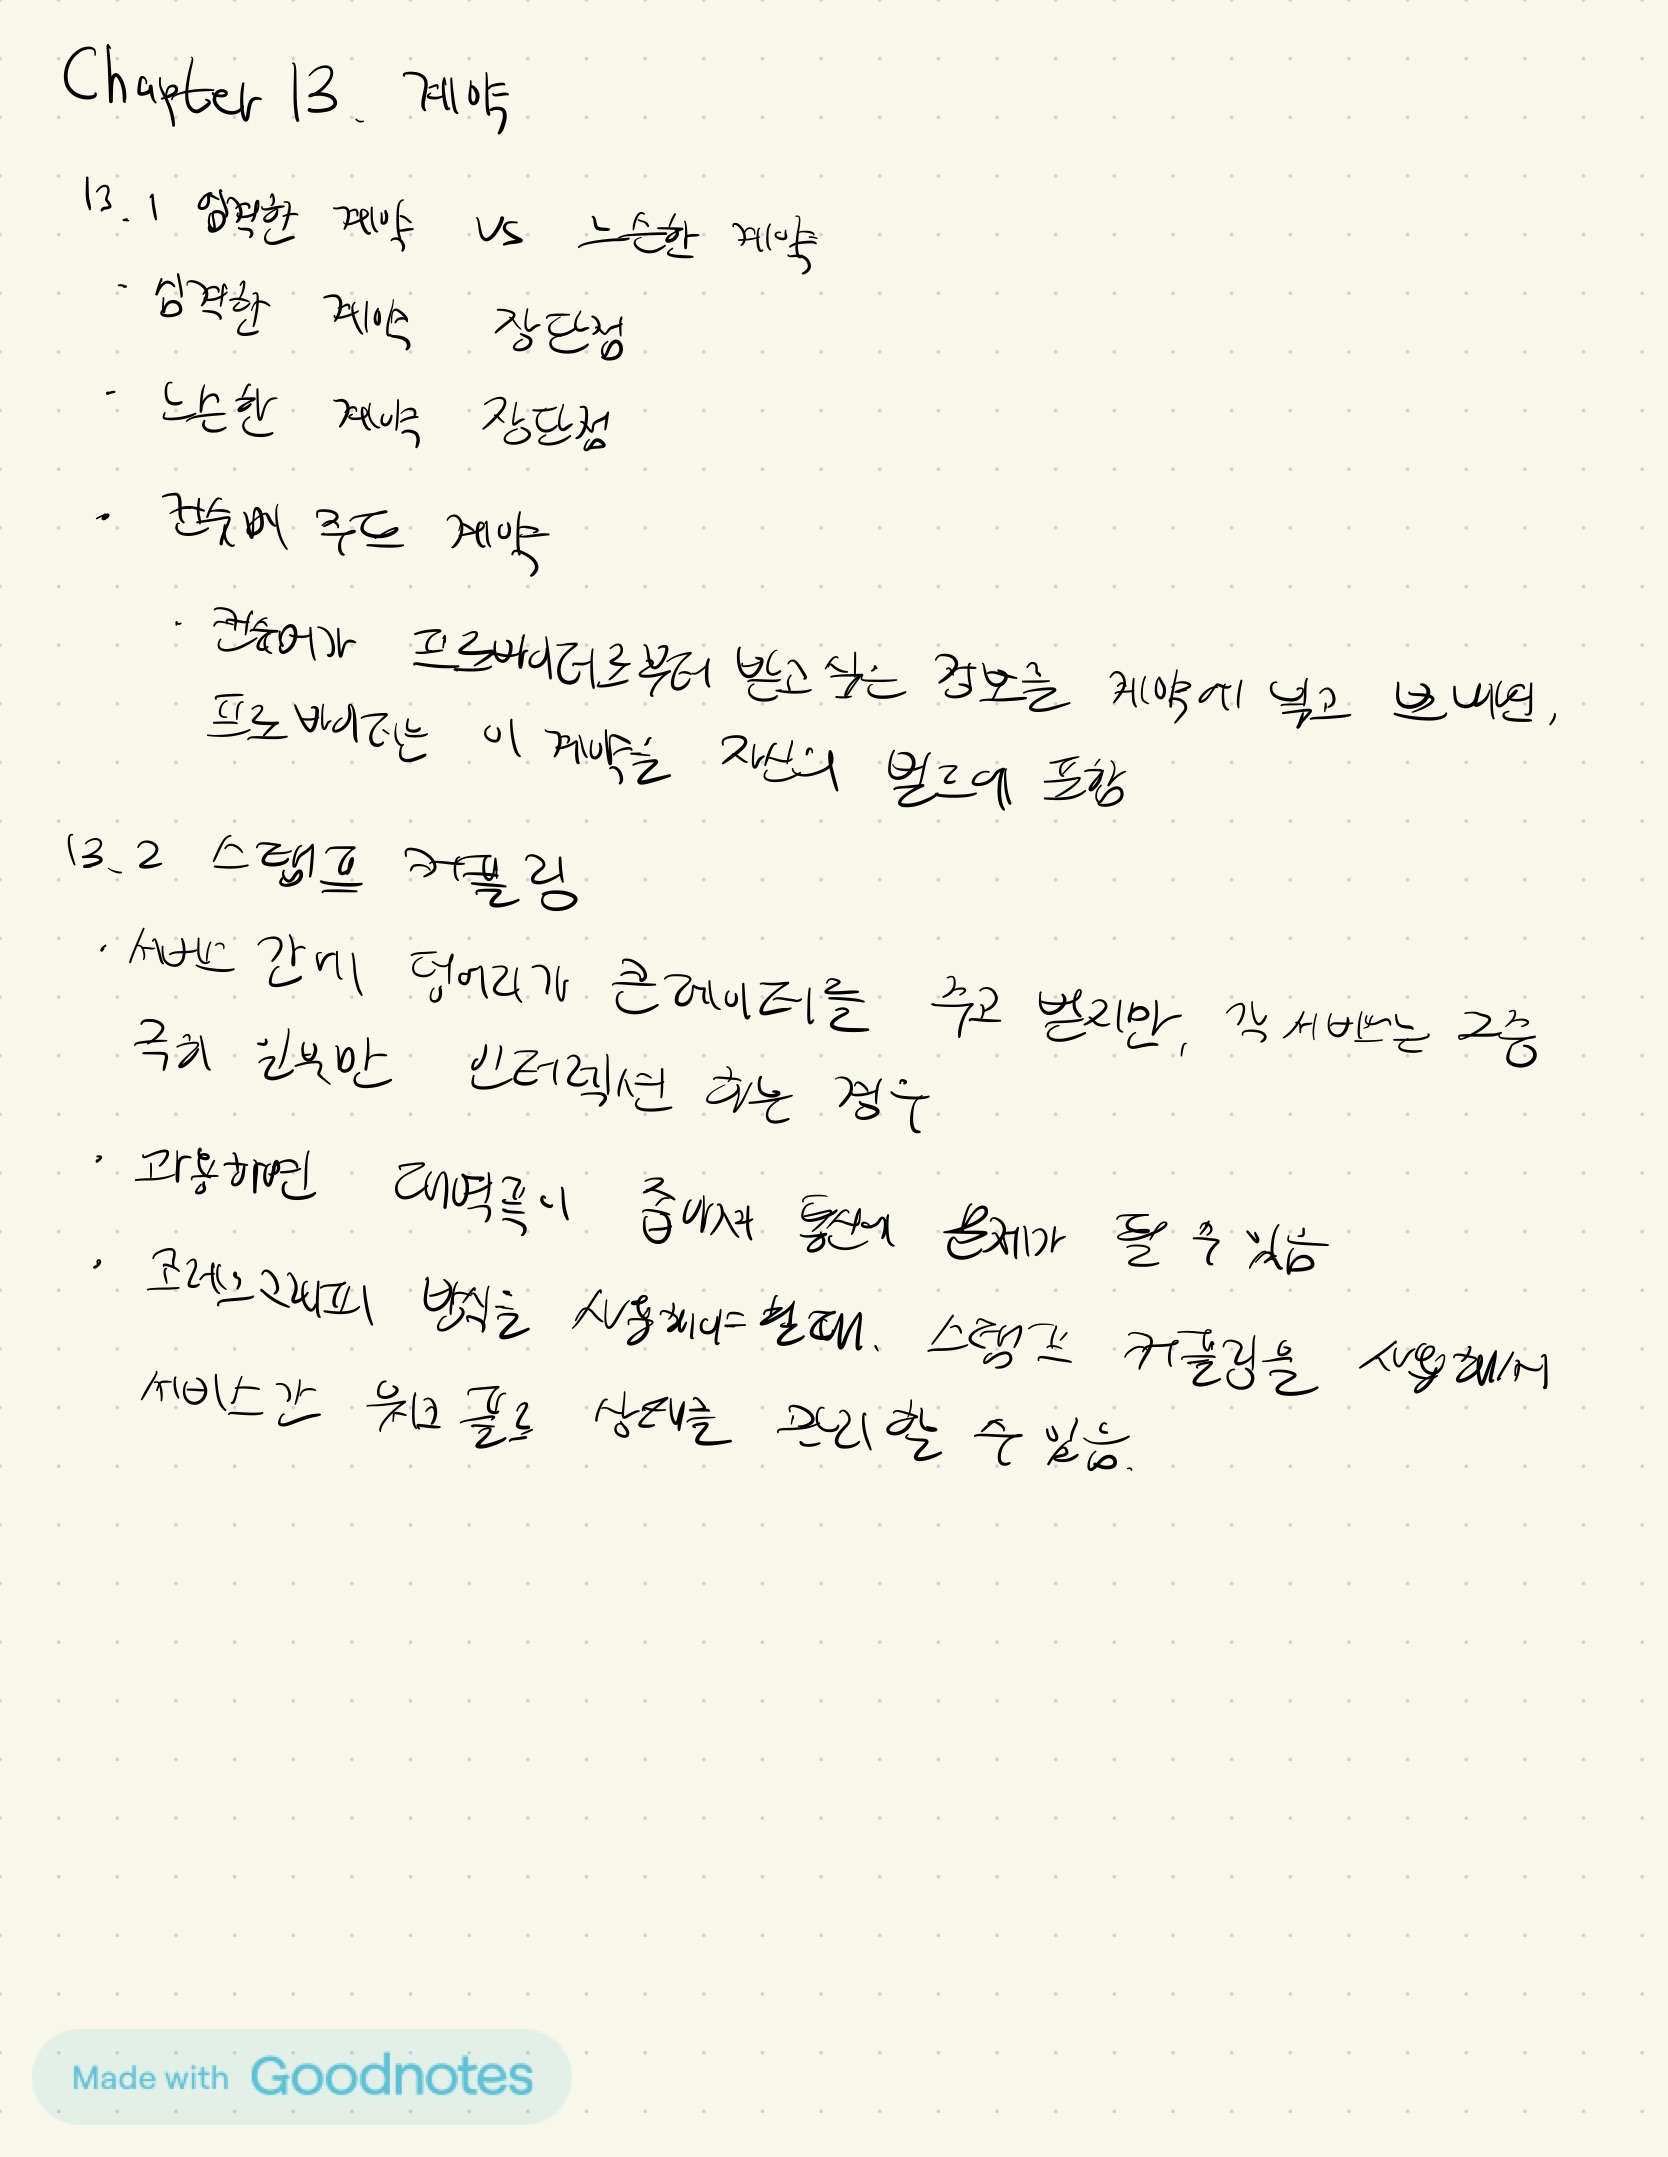 Chapter 13. 계약
13.1 엄격한 계약 vs 느슨한 계약
· 엄격한 계약 장단점
· 느슨한 계약 장단점
· 컨슈머 주도 계약
· 컨슈머가 프로바이더로부터 받고 싶은 정보를 계약에 넣고 보내면,
프로바이더는 이 계약을 자신의 빌드에 포함
13.2 스탬프 커플링
· 서비스 간에 덩어리가 큰 데이터를 주고 받지만, 각 서비스는 그중
극히 일부만 인터렉션 하는 경우
· 과용하면 대역폭이 좁아져 통신에 문제가 될 수 있음
· 코레오그래피 방식을 사용해야 할 때, 스탬프 커플링을 사용해서
서비스간 워크플로 상태를 관리할 수 있음.
Made with Goodnotes